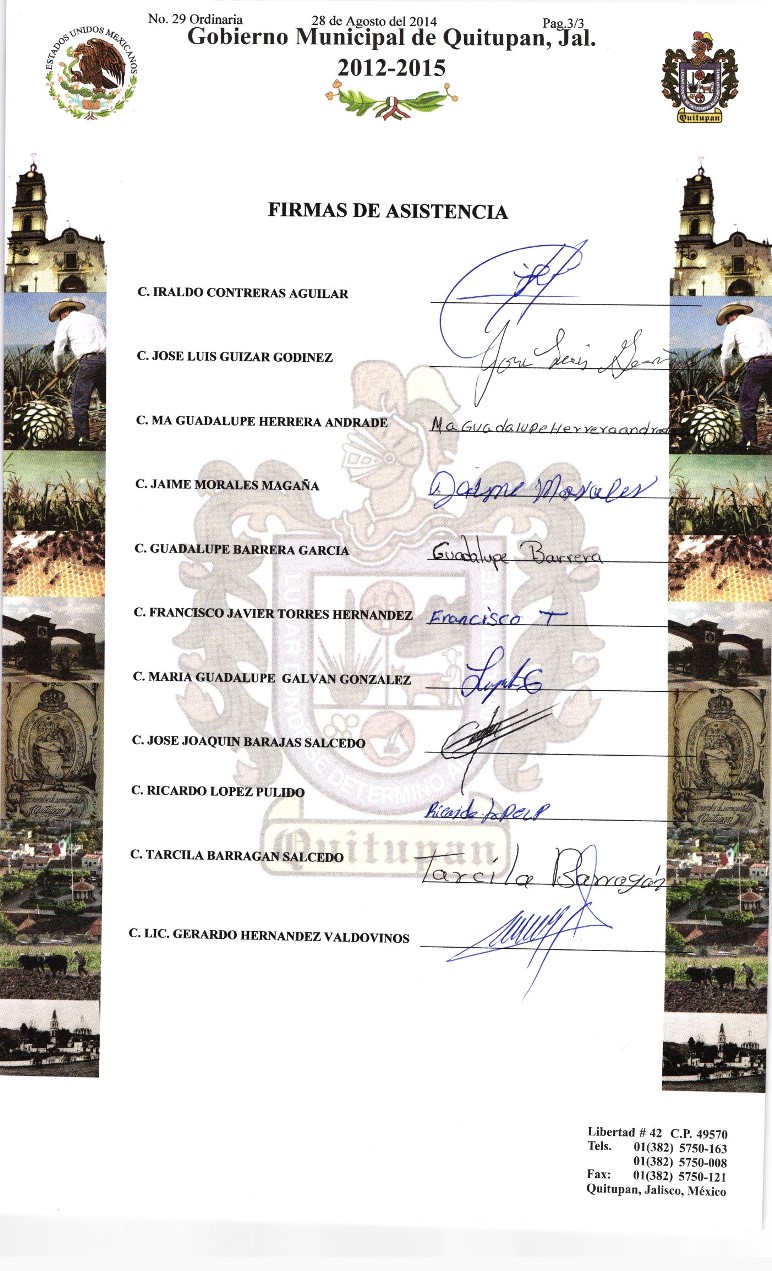 No. 29 Ordinaria 28 de Agosto del 2014 Pag.3/3
Gobierno Municipal de Quitupan, Jal.
2012-2015
ESTADOS UNIDOS MEXICANOS
Quitupan
FIRMAS DE ASISTENCIA
C. IRALDO CONTRERAS AGUILAR
C. JOSE LUIS GUIZAR GODINEZ Jose Luis
C. MA GUADALUPE HERRERA ANDRADE Ma Guadalupe Herrera andrade
C. JAIME MORALES MAGAÑA Jaime Morales
C. GUADALUPE BARRERA GARCIA Guadalupe Barrera
C. FRANCISCO JAVIER TORRES HERNANDEZ Francisco T
C. MARIA GUADALUPE GALVAN GONZALEZ
C. JOSE JOAQUIN BARAJAS SALCEDO
C. RICARDO LOPEZ PULIDO
C. TARCILA BARRAGAN SALCEDO Tarcila Barragán
C. LIC. GERARDO HERNANDEZ VALDOVINOS
Quitupan
Libertad # 42 C.P. 49570
Tels. 01(382) 5750-163
01(382) 5750-008
Fax: 01(382) 5750-121
Quitupan, Jalisco, México